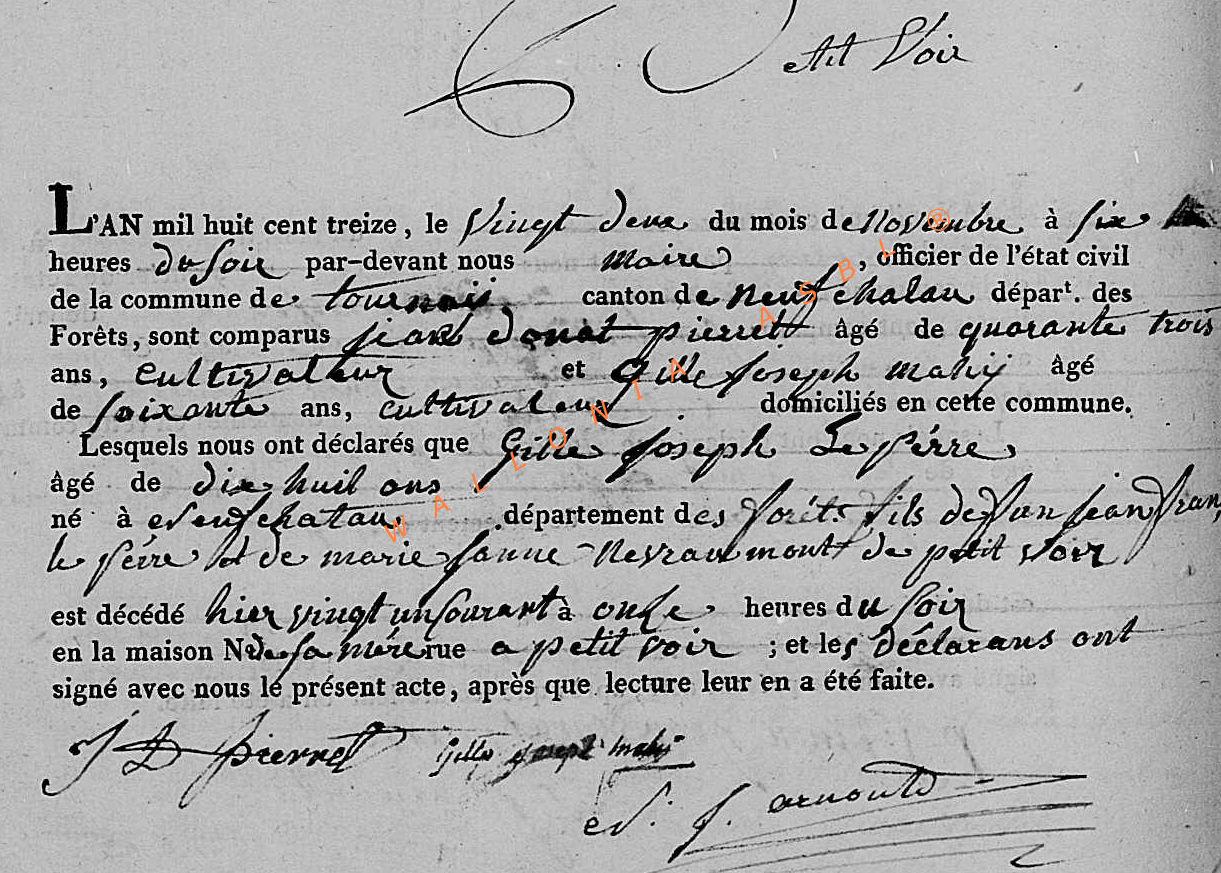 6 Petit Voir
L'AN mil huit cent treize, le vingt deux du mois de Novembre à six
heures du soir par-devant nous maire, officier de l'état civil
de la commune de tournais canton de neufchatau départ. des
Forêts, sont comparus jean donat pierrett âgé de quarante trois
ans, cultivateur et Gille joseph mahij âgé
de soixante ans, cultivateur domiciliés en cette commune.
Lesquels nous ont déclarés que Gille joseph Le pérre
âgé de dix huit ans
né à Neufchatau département des forêts fils de fun jean fran
le pérre et de marie janne Nevraumont de petit voir
est décédé hier vingt un courant à onze heures du soir
en la maison N de sa mére rue a petit voir ; et les déclarans ont
signé avec nous le présent acte, après que lecture leur en a été faite.
J D pierret Gille joseph mahij
N. J. arnould
WALLONIA ASBL ®